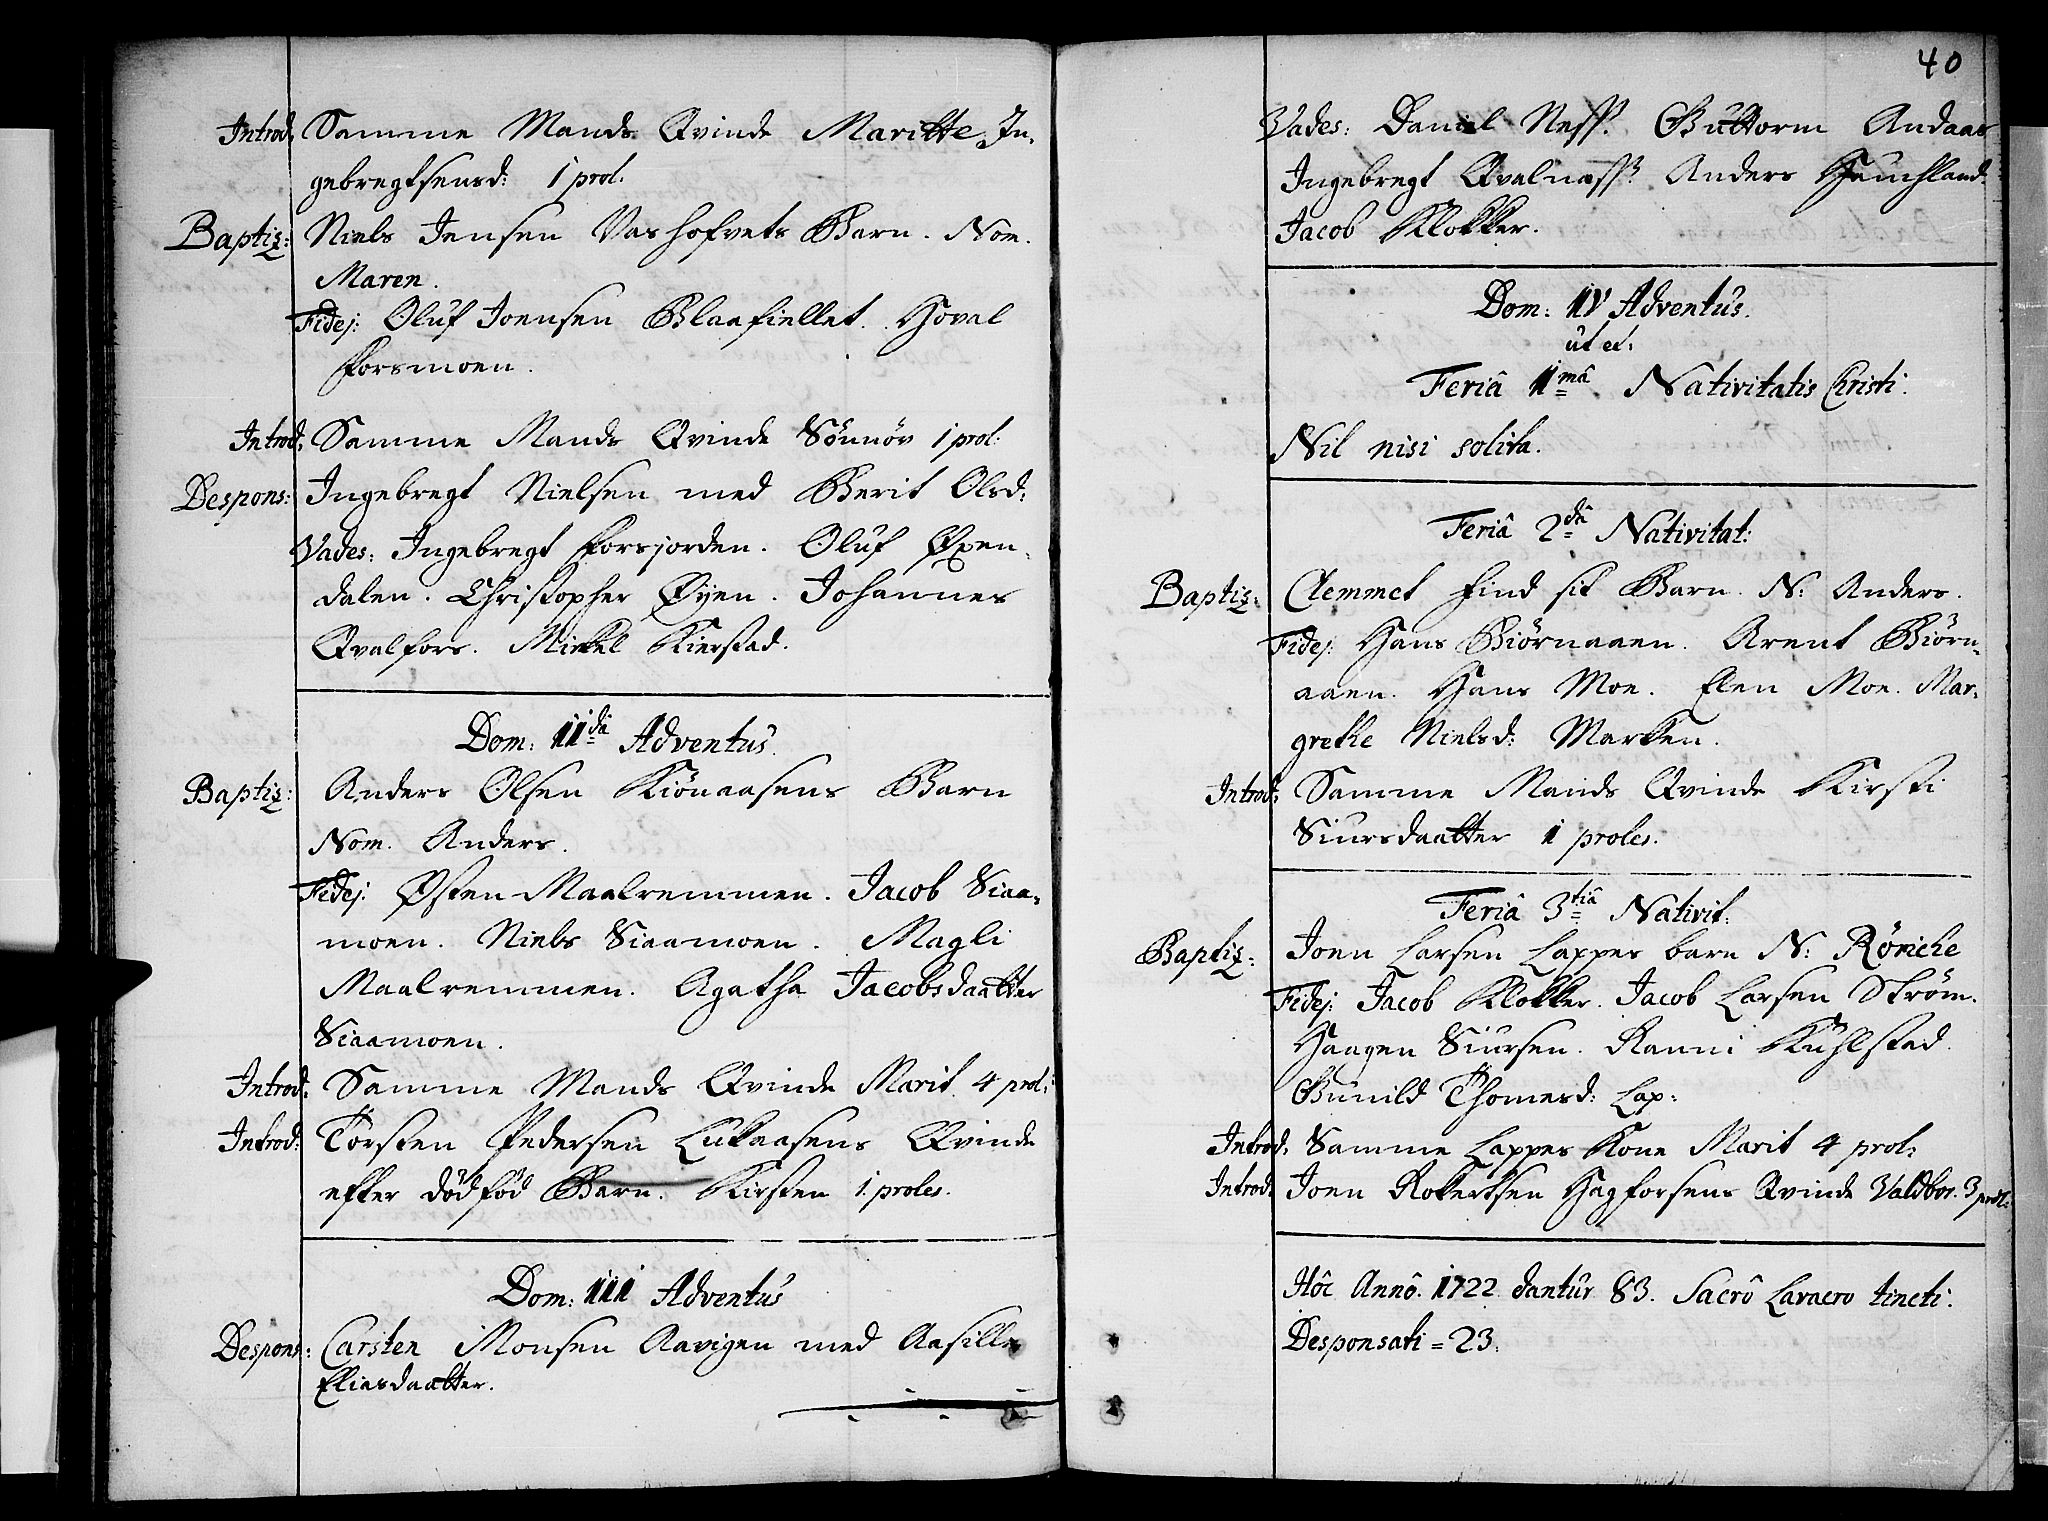 Introd: Samme Mands Qvinde Maritte In-
gebregtsensd: 1 prol.
Baptiz: Niels Jensen Vashofvets Barn. Nom.
Maren.
Fidej: Oluf Joensen Blaafiellet. Hoval
Forsmoen.
Introd: Samme Mands Qvinde Sönnöv 1 prol:
Despons: Ingebregt Nielsen med Berit Olsd:
Vades: Ingebregt Forsjorden. Oluf Øxen-
dalen. Christopher Øyen. Johannes
Qvalfors. Mickel Kierstad.
Dom: II da Adventus.
Baptiz: Anders Olsen Kiönaasens Barn
Nom. Anders.
Fidej: Østen Maalremmen. Jacob Siaa-
moen. Niels Siaamoen. Magli
Maalremmen. Agatha Jacobsdaatter
Siaamoen.
Introd: Samme Mands Qvinde Marit 4 prol:
Introd: Torsten Pedersen Lukaasens Qvinde
efter dödföd Barn. Kirsten 1 proles.
Dom: III Adventus
Despons: Carsten Monsen Aavigen med Aasille
Eliasdaatter.
40
Vades: Daniel Ness. Guttorm Andaas
Ingebregt Qvalness. Anders Hauchland.
Jacob Klokker.
Dom: IV Adventus.
ut et:
Feriâ 1mâ Nativitatis Christi.
Nil nisi solita.
Feriâ 2dâ Nativitat:
Baptiz: Clemmet Find sit Barn. N: Anders.
Fidej: Hans Biörnaaen. Arent Biörn-
aaen. Hans Moe. Elen Moe. Mar-
grethe Nielsd: Marken.
Introd: Samme Mands Qvinde Kirsti
Siursdaatter 1 proles.
Feriâ 3tiâ Nativit:
Baptiz: Joen Larsen Lappes barn N: Röniche
Fidej: Jacob Klokker. Jacob Larsen Ström.
Haagen Siursen. Ranni Kuhlstad.
Gunild Thomesd: Lap:
Introd: Samme Lappes Kone Marit 4 prol:
Introd: Joen Robertsen Hagforsens Qvinde Valdbor. 3 prol:
Hôc Annô. 1722 dantur 83. Sacrô Lavacro tincti.
Desponsati = 23.